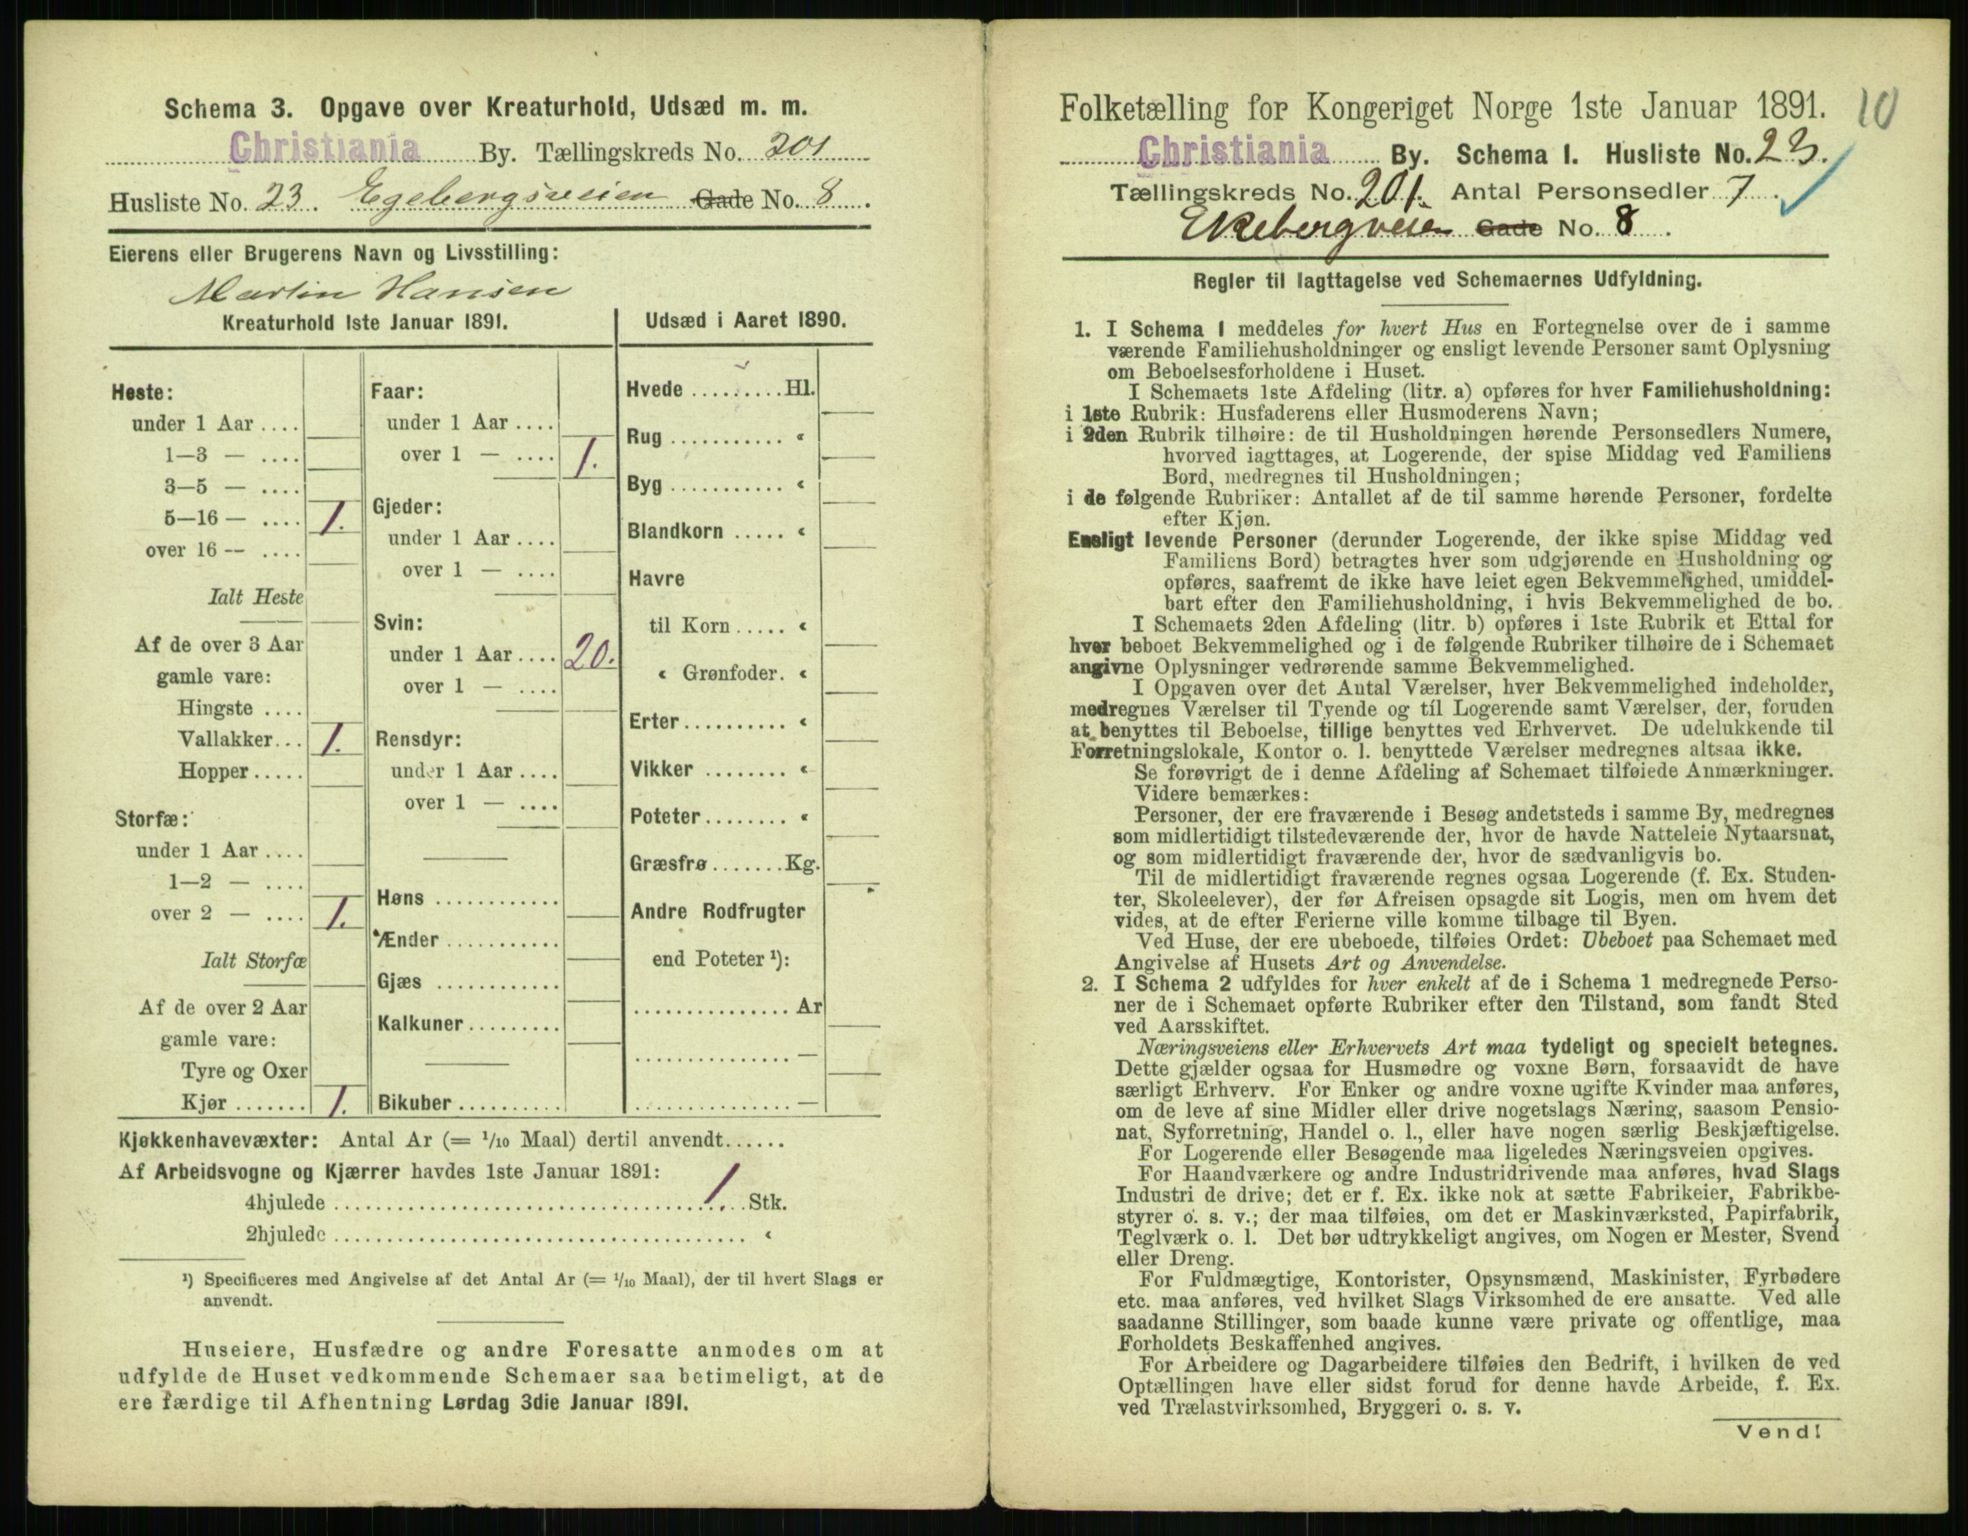 Schema 3. Opgave over Kreaturhold, Udsæd m. m.
Christiania By. Tællingskreds No. 201
Husliste No. 23. Egebergsveien Gade No. 8.
Eierens eller Brugerens Navn og Livsstilling:
Martin Hansen
Kreaturhold 1ste Januar 1891.
Heste:
under 1 Aar ....
1—3 — ....
3—5 — ....
5—16 — .... 1.
over 16 — ....
Ialt Heste
Af de over 3 Aar
gamle vare:
Hingste ....
Vallakker... 1.
Hopper.....
Storfæ:
under 1 Aar ....
1—2 — ....
over 2 — .... 1.
Ialt Storfæ
Af de over 2 Aar
gamle vare:
Tyre og Oxer
Kjør ....... 1.
Faar:
under 1 Aar ....
over 1 — .... 1.
Gjeder:
under 1 Aar ....
over 1 — ....
Svin:
under 1 Aar .... 20.
over 1 — ....
Rensdyr:
under 1 Aar ....
over 1 — ....
Høns ...........
Ænder ...........
Gjæs ...........
Kalkuner .........
Bikuber ..........
Udsæd i Aaret 1890.
Hvede ......... Hl.
Rug ........... «
Byg ........... «
Blandkorn ..... «
Havre
til Korn ..... «
« Grønfoder. «
Erter .......... «
Vikker ........ «
Poteter ........ «
Græsfrø ....... Kg.
Andre Rodfrugter
end Poteter ¹):
............... Ar
............... —
............... —
Kjøkkenhavevæxter: Antal Ar (= 1/10 Maal) dertil anvendt......
Af Arbeidsvogne og Kjærrer havdes 1ste Januar 1891:
4hjulede ........................................ 1. Stk.
2hjulede ........................................ «
¹) Specificeres med Angivelse af det Antal Ar (= 1/10 Maal), der til hvert Slags er
anvendt.
Huseiere, Husfædre og andre Foresatte anmodes om at
udfylde de Huset vedkommende Schemaer saa betimeligt, at de
ere færdige til Afhentning Lørdag 3die Januar 1891.
Folketælling for Kongeriget Norge 1ste Januar 1891. 10
Christiania By. Schema 1. Husliste No. 23.
Tællingskreds No. 201. Antal Personsedler 7.
Ekebergveien Gade No. 8.
Regler til Iagttagelse ved Schemaernes Udfyldning.
1. I Schema 1 meddeles for hvert Hus en Fortegnelse over de i samme
værende Familiehusholdninger og ensligt levende Personer samt Oplysning
om Beboelsesforholdene i Huset.
I Schemaets 1ste Afdeling (litr. a) opføres for hver Familiehusholdning:
i 1ste Rubrik: Husfaderens eller Husmoderens Navn;
i 2den Rubrik tilhøire: de til Husholdningen hørende Personsedlers Numere,
hvorved iagttages, at Logerende, der spise Middag ved Familiens
Bord, medregnes til Husholdningen;
i de følgende Rubriker: Antallet af de til samme hørende Personer, fordelte
efter Kjøn.
Ensligt levende Personer (derunder Logerende, der ikke spise Middag ved
Familiens Bord) betragtes hver som udgjørende en Husholdning og
opføres, saafremt de ikke have leiet egen Bekvemmelighed, umiddel-
bart efter den Familiehusholdning, i hvis Bekvemmelighed de bo.
I Schemaets 2den Afdeling (litr. b) opføres i 1ste Rubrik et Ettal for
hver beboet Bekvemmelighed og i de følgende Rubriker tilhøire de i Schemaet
angivne Oplysninger vedrørende samme Bekvemmelighed.
I Opgaven over det Antal Værelser, hver Bekvemmelighed indeholder,
medregnes Værelser til Tyende og til Logerende samt Værelser, der, foruden
at benyttes til Beboelse, tillige benyttes ved Erhvervet. De udelukkende til
Forretningslokale, Kontor o. l. benyttede Værelser medregnes altsaa ikke.
Se forøvrigt de i denne Afdeling af Schemaet tilføiede Anmærkninger.
Videre bemærkes:
Personer, der ere fraværende i Besøg andetsteds i samme By, medregnes
som midlertidigt tilstedeværende der, hvor de havde Natteleie Nytaarsnat,
og som midlertidigt fraværende der, hvor de sædvanligvis bo.
Til de midlertidigt fraværende regnes ogsaa Logerende (f. Ex. Studen-
ter, Skoleelever), der før Afreisen opsagde sit Logis, men om hvem det
vides, at de efter Ferierne ville komme tilbage til Byen.
Ved Huse, der ere ubeboede, tilføies Ordet: Ubeboet paa Schemaet med
Angivelse af Husets Art og Anvendelse.
2. I Schema 2 udfyldes for hver enkelt af de i Schema 1 medregnede Perso-
ner de i Schemaet opførte Rubriker efter den Tilstand, som fandt Sted
ved Aarsskiftet.
Næringsveiens eller Erhvervets Art maa tydeligt og specielt betegnes.
Dette gjælder ogsaa for Husmødre og voxne Børn, forsaavidt de have
særligt Erhverv. For Enker og andre voxne ugifte Kvinder maa anføres,
om de leve af sine Midler eller drive nogetslags Næring, saasom Pensio-
nat, Syforretning, Handel o. l., eller have nogen særlig Beskjæftigelse.
For Logerende eller Besøgende maa ligeledes Næringsveien opgives.
For Haandværkere og andre Industridrivende maa anføres, hvad Slags
Industri de drive; det er f. Ex. ikke nok at sætte Fabrikeier, Fabrikbe-
styrer o. s. v.; der maa tilføies, om det er Maskinværksted, Papirfabrik,
Teglværk o. l. Det bør udtrykkeligt angives, om Nogen er Mester, Svend
eller Dreng.
For Fuldmægtige, Kontorister, Opsynsmænd, Maskinister, Fyrbødere
etc. maa anføres, ved hvilket Slags Virksomhed de ere ansatte. Ved alle
saadanne Stillinger, som baade kunne være private og offentlige, maa
Forholdets Beskaffenhed angives.
For Arbeidere og Dagarbeidere tilføies den Bedrift, i hvilken de ved
Optællingen have eller sidst forud for denne havde Arbeide, f. Ex.
ved Trælastvirksomhed, Bryggeri o. s. v.
Vend!